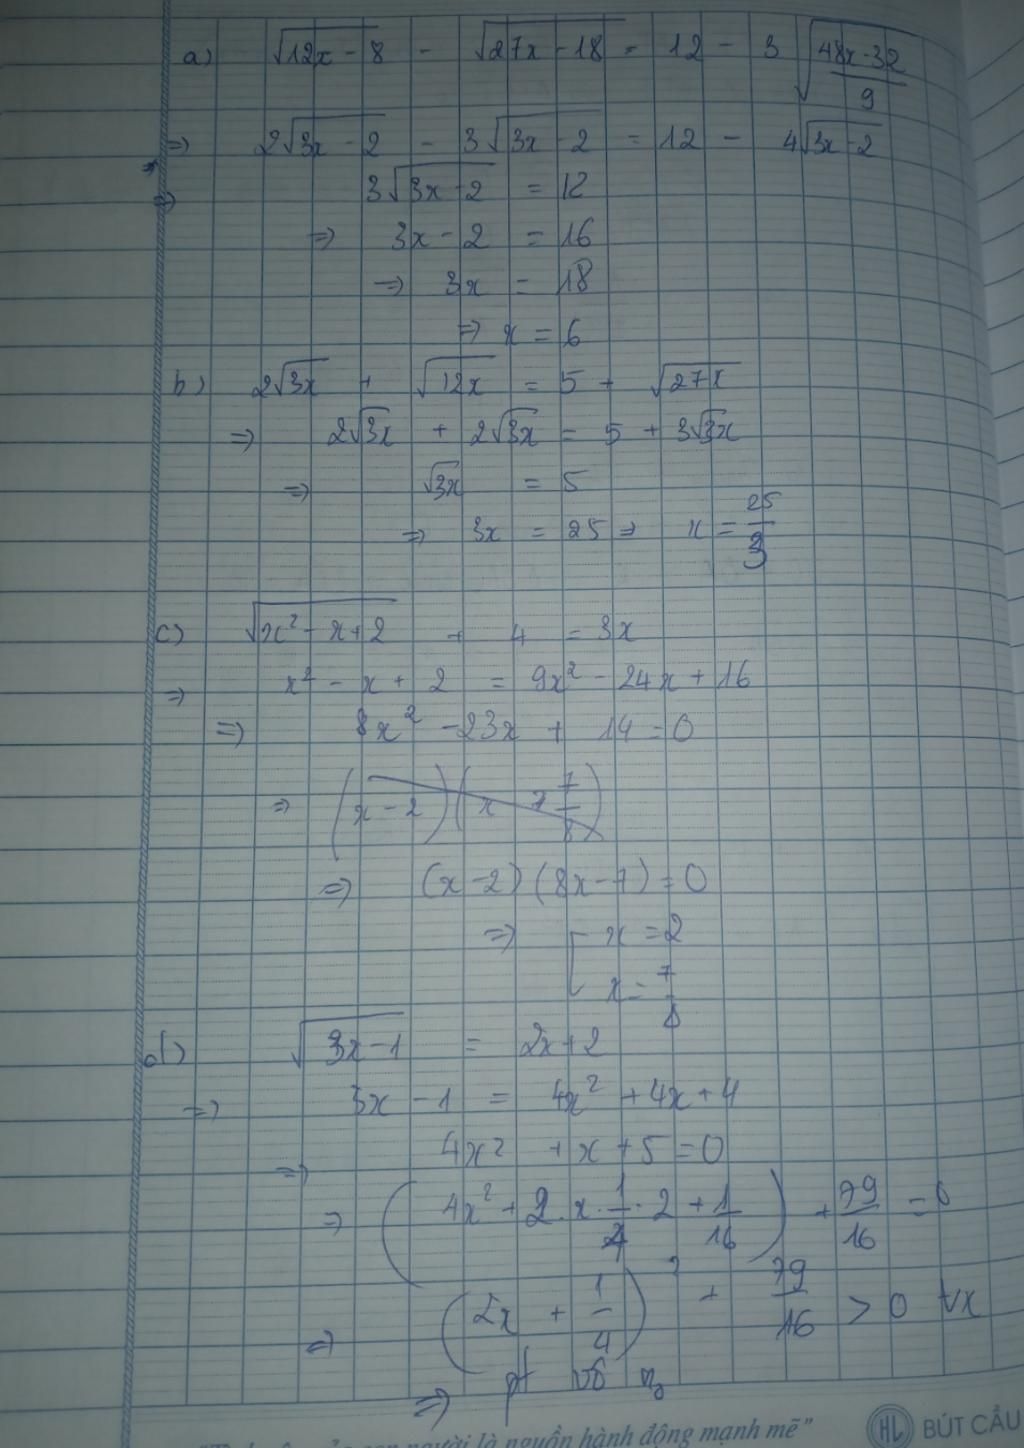 a) √(12x - 8) - √(27x - 18) = 12 - 3√((48x - 32)/9)
=> 2√(3x - 2) - 3√(3x - 2) = 12 - 4√(3x - 2)
=> 3√(3x - 2) = 12
=> 3x - 2 = 16
=> 3x = 18
=> x = 6
b) 2√(3x) + √(12x) = 5 + √(27x)
=> 2√3x + 2√3x = 5 + 3√3x
=> √3x = 5
=> 3x = 25 => x = 25/3
c) √(x² - x + 2) + 4 = 3x
=> x² - x + 2 = 9x² - 24x + 16
=> 8x² - 23x + 14 = 0
=> (x - 2)(x 7/8)
=> (x - 2)(8x - 7) = 0
=> [ x = 2
x = 7/8
d) √(3x - 1) = 2x + 2
=> 3x - 1 = 4x² + 4x + 4
=> 4x² + x + 5 = 0
=> (4x² + 2.x.1/4.2 + 1/16) + 79/16 = 0
=> (2x + 1/4)² + 79/16 > 0 ∀x
=> pt vô n₀
người là nguồn hành động mạnh mẽ"
HL BÚT CẦU